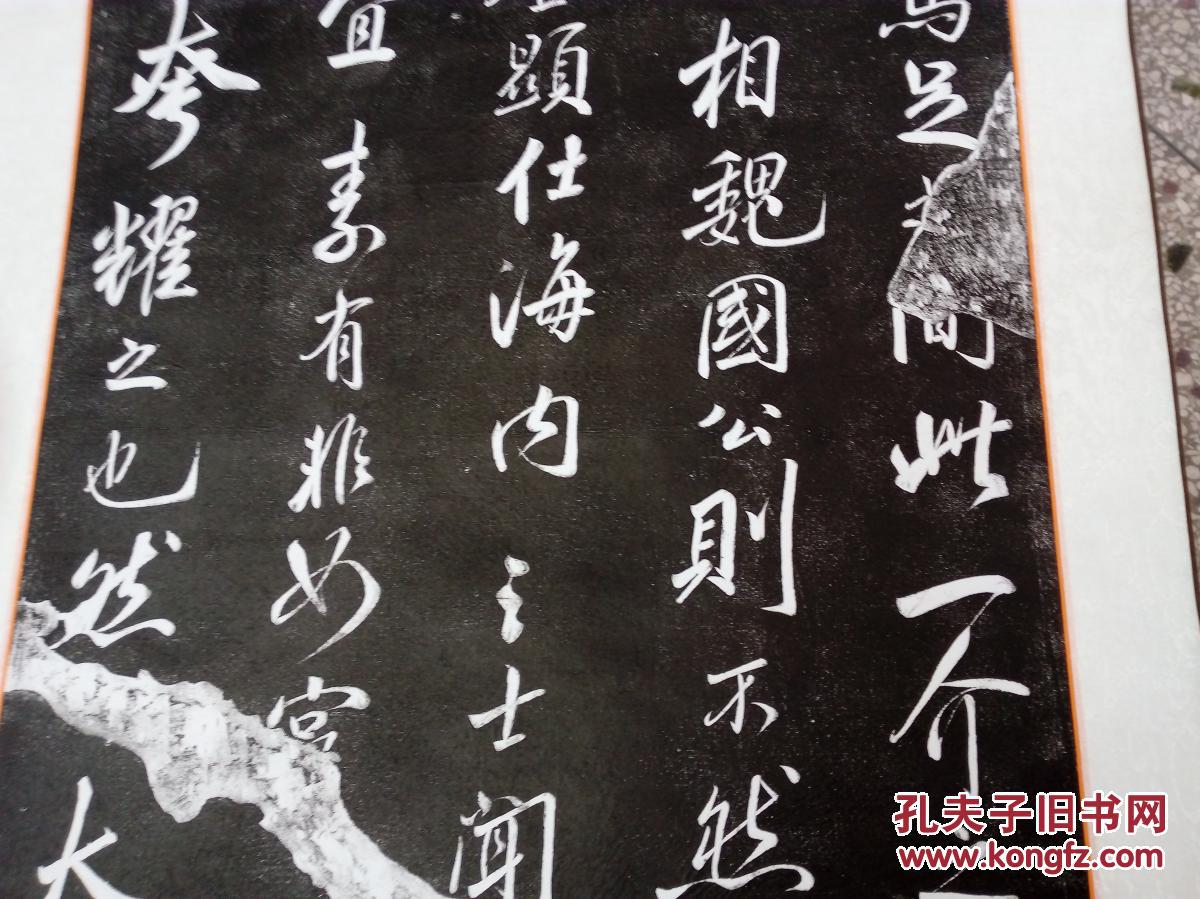 馬足之間此一介之
相魏國公則不然
顯仕海内之士聞
宜素有非如窮
夸耀之也然
大
孔夫子旧书网
www.kongfz.com